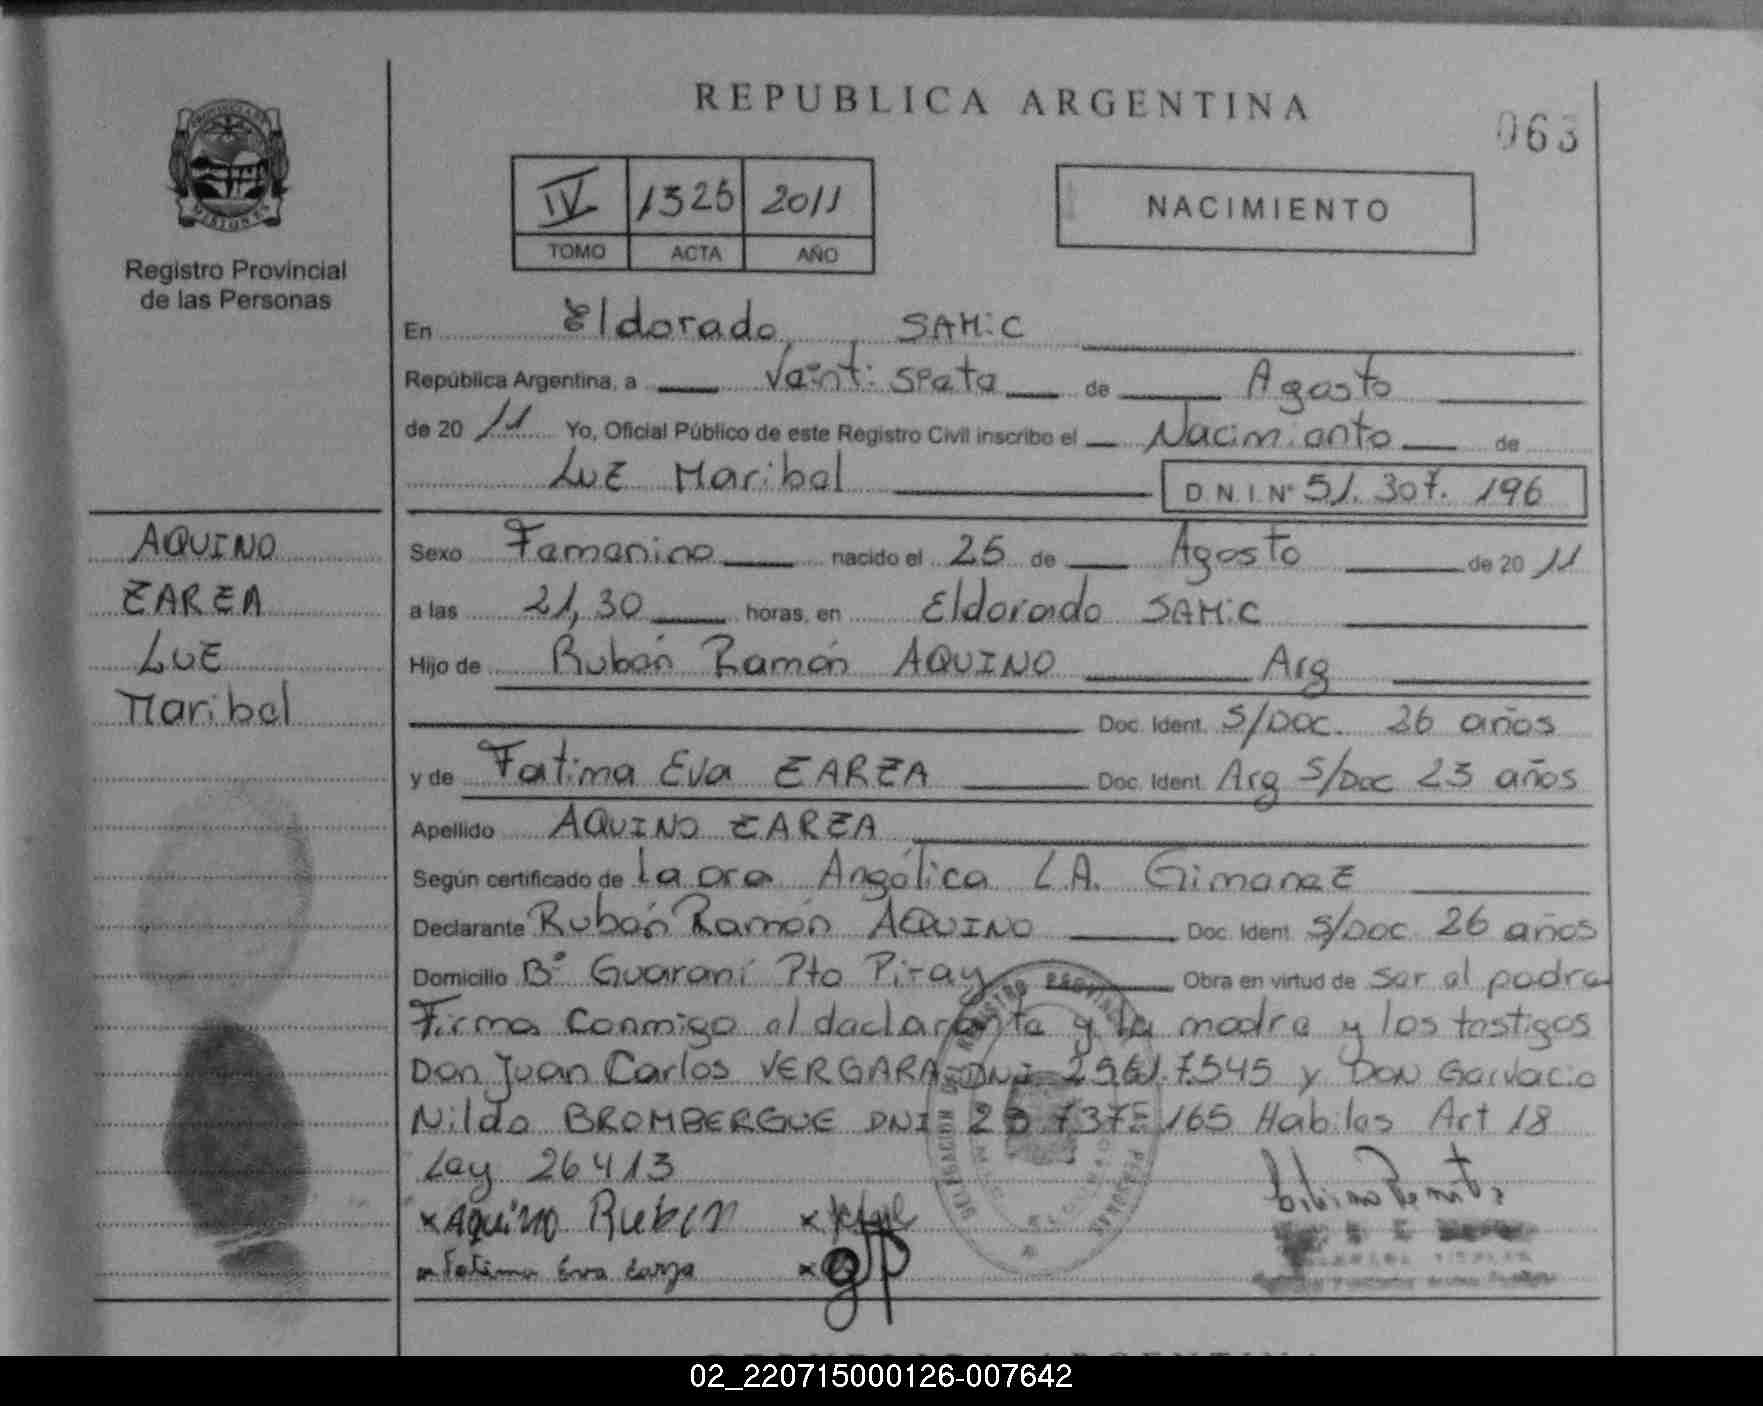 REPUBLICA ARGENTINA
063
IV 1325 2011
TOMO ACTA AÑO
NACIMIENTO
Registro Provincial
de las Personas
En Eldorado, SAMiC
República Argentina, a Veinti siete de Agosto
de 20 11 Yo, Oficial Público de este Registro Civil inscribo el Nacimiento de
Luz Maribel D.N.I. Nº 51.307.196
AQUINO
ZARZA
Luz
Maribel
Sexo Femenino nacido el 25 de Agosto de 20 11
a las 21,30 horas, en Eldorado SAMiC
Hijo de Rubén Ramón AQUINO Arg
Doc. Ident. S/Doc. 26 años
y de Fatima Eva ZARZA Doc. Ident. Arg S/Doc 23 años
Apellido AQUINO ZARZA
Según certificado de la Dra Angélica L.A. Gimenez
Declarante Rubén Ramón AQUINO Doc. Ident. S/Doc. 26 años
Domicilio Bº Guaraní Pto Piray Obra en virtud de ser el padre
Firma conmigo el declarante y la madre y los testigos
Don Juan Carlos VERGARA DNI 7545 y Don
Nildo BROMBERGUE DNI 165 Habiles Art 18
Ley 26413
x Aquino Ruben
Fatima Eva Zarza
02_220715000126-007642